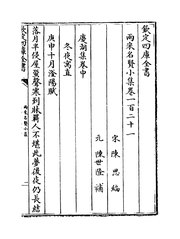 欽定四庫全書
兩宋名賢小集卷一百二十一
宋　陳思　編
元　陳世隆　補
慶湖集卷中
冬夜寓直
庚申十月滏陽賦
落月半侵屋蛩寒到牀羈人不堪此夢後夜仍長結
欽定四庫全書
兩宋名賢小集